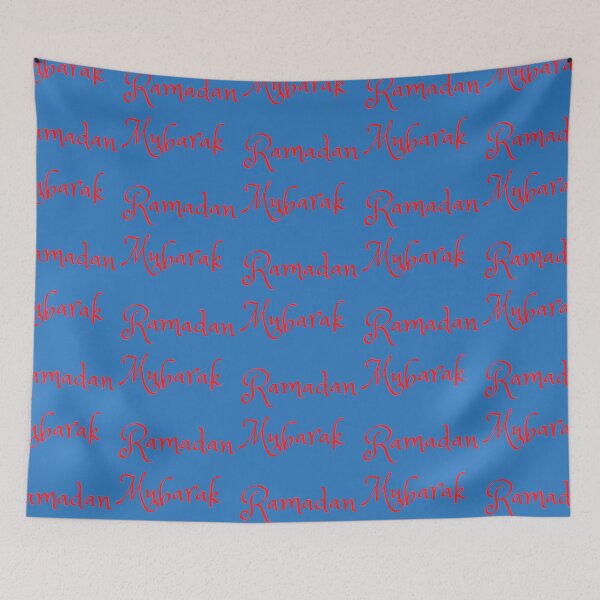 Mubarak Ramadan Mubarak Ramadan Mubarak
Ramadan Mubarak Ramadan Mubarak Ramadan
Mubarak Ramadan Mubarak Ramadan Mubarak
Ramadan Mubarak Ramadan Mubarak Ramadan
Mubarak Ramadan Mubarak Ramadan Mubarak
Ramadan Mubarak Ramadan Mubarak Ramadan
Mubarak Ramadan Mubarak Ramadan Mubarak
Ramadan Mubarak Ramadan Mubarak Ramadan